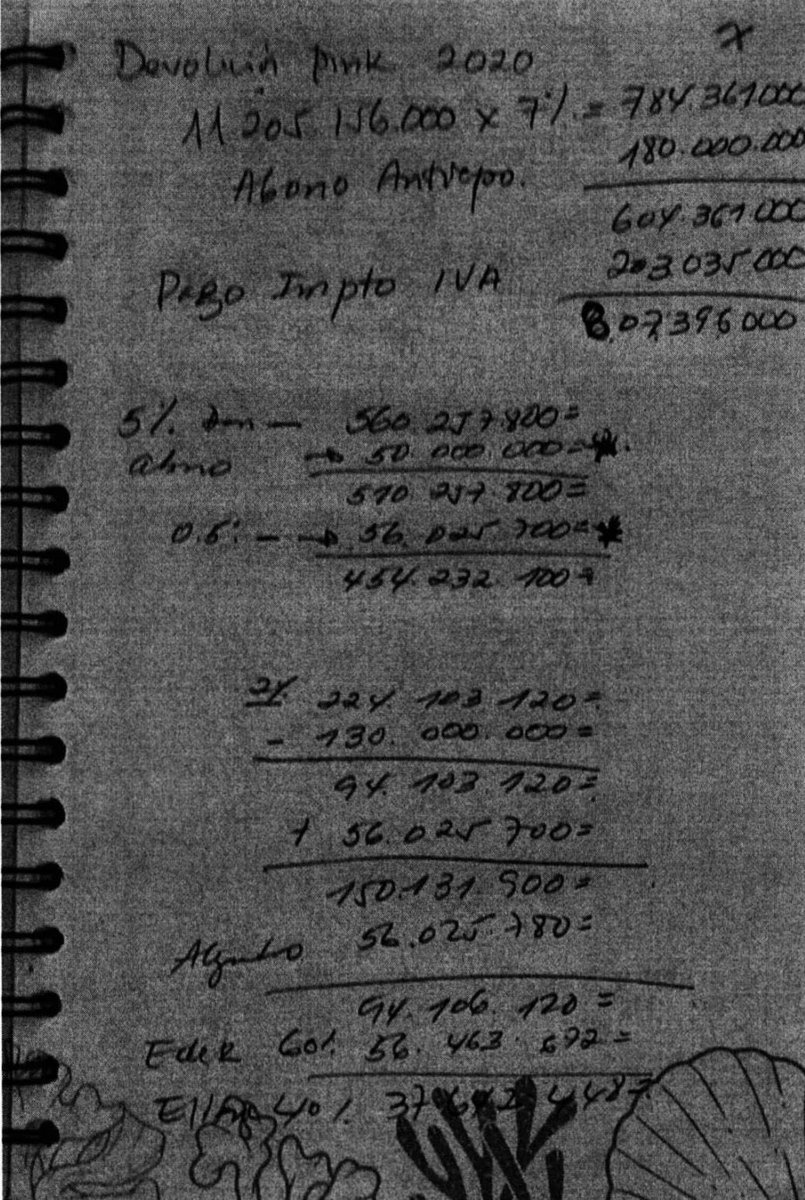 7
Devolución pink 2020
11.205.156.000 x 7% = 784.361000
180.000.000
Abono Anticipo.
604.361000
203.035000
Pago Impto IVA
8.07.396000
5% — 560.257.800=
abono → 50.000.000=*.
510.257.800=
0.5: — → 56.025.700=*
454.232.100=
2% 224.103.120=
- 130.000.000=
94.103.120=
+ 56.025.700=
150.131.900=
56.025.780=
94.106.120=
60% 56.463.672=
40%